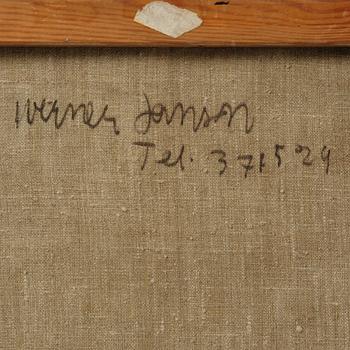 Werner Janson
Tel. 371529